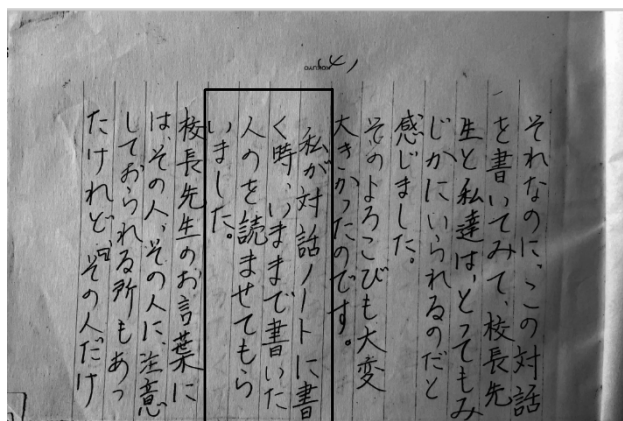 それなのに、この対話
を書いてみて、校長先
生と私達は、とってもみ
じかにいられるのだと
感じました。
そのよろこびも大変
大きかったのです。
私が対話ノートに書
く時、いままで書いた
人のを読ませてもら
いました。
校長先生のお言葉に
は、その人、その人に、注意
しておられる所もあっ
たけれど、その人だけ